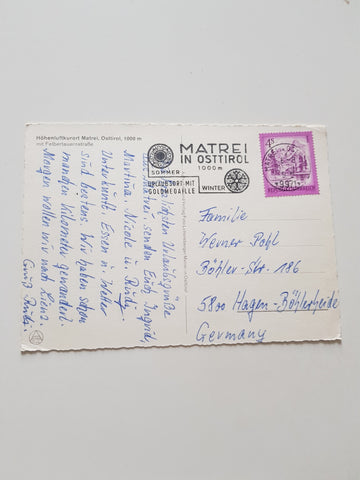 Höhenluftkurort Matrei, Osttirol, 1000 m
mit Felbertauernstraße
MATREI
IN OSTTIROL
1000m
SOMMER
URLAUBSORT MIT
GOLDMEDAILLE
WINTER
4S
Urlaubsgrüße
senden Euch Ingrid,
Martina, Nicole u. Rudi.
Unterkunft, Essen u. Wetter
sind bestens. Wir haben schon
manchen Kilometer gewandert.
Morgen wollen wir nach Lienz.
Gruß Rudi.
Familie
Werner Pohl
Böhler-Str. 186
5800 Hagen-Böhlerheide
Germany